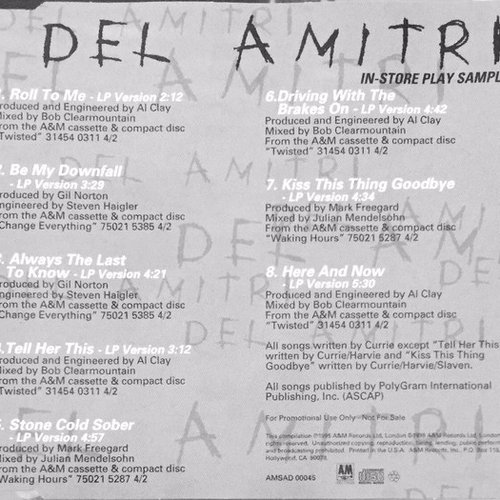 DEL AMITRI
IN-STORE PLAY SAMPL
1. Roll To Me - LP Version 2:12
Produced and Engineered by Al Clay
Mixed by Bob Clearmountain
From the A&M cassette & compact disc
"Twisted" 31454 0311 4/2
2. Be My Downfall
- LP Version 3:29
Produced by Gil Norton
Engineered by Steven Haigler
From the A&M cassette & compact disc
"Change Everything" 75021 5385 4/2
3. Always The Last
To Know - LP Version 4:21
Produced by Gil Norton
Engineered by Steven Haigler
From the A&M cassette & compact disc
"Change Everything" 75021 5385 4/2
4.Tell Her This - LP Version 3:12
Produced and Engineered by Al Clay
Mixed by Bob Clearmountain
From the A&M cassette & compact disc
"Twisted" 31454 0311 4/2
5. Stone Cold Sober
- LP Version 4:57
Produced by Mark Freegard
Mixed by Julian Mendelsohn
From the A&M cassette & compact disc
"Waking Hours" 75021 5287 4/2
6.Driving With The
Brakes On - LP Version 4:42
Produced and Engineered by Al Clay
Mixed by Bob Clearmountain
From the A&M cassette & compact disc
"Twisted" 31454 0311 4/2
7. Kiss This Thing Goodbye
- LP Version 4:34
Produced by Mark Freegard
Mixed by Julian Mendelsohn
From the A&M cassette & compact disc
"Waking Hours" 75021 5287 4/2
8. Here And Now
- LP Version 5:30
Produced and Engineered by Al Clay
Mixed by Bob Clearmountain
From the A&M cassette & compact disc
"Twisted" 31454 0311 4/2
All songs written by Currie except "Tell Her This"
written by Currie/Harvie and "Kiss This Thing
Goodbye" written by Currie/Harvie/Slaven.
All songs published by PolyGram International
Publishing, Inc. (ASCAP)
For Promotional Use Only - Not For Sale
This compilation ©1995 A&M Records Ltd, London ℗1995 A&M Records Ltd, London. All rights
reserved. Unauthorized copying, reproduction, hiring, lending, public performance
and broadcasting prohibited. Printed in the U.S.A. A&M Records, Inc., P.O. Box 118,
Hollywood, CA 90078.
AMSAD 00045
A&M
RECORDS
COMPACT
disc
DIGITAL AUDIO